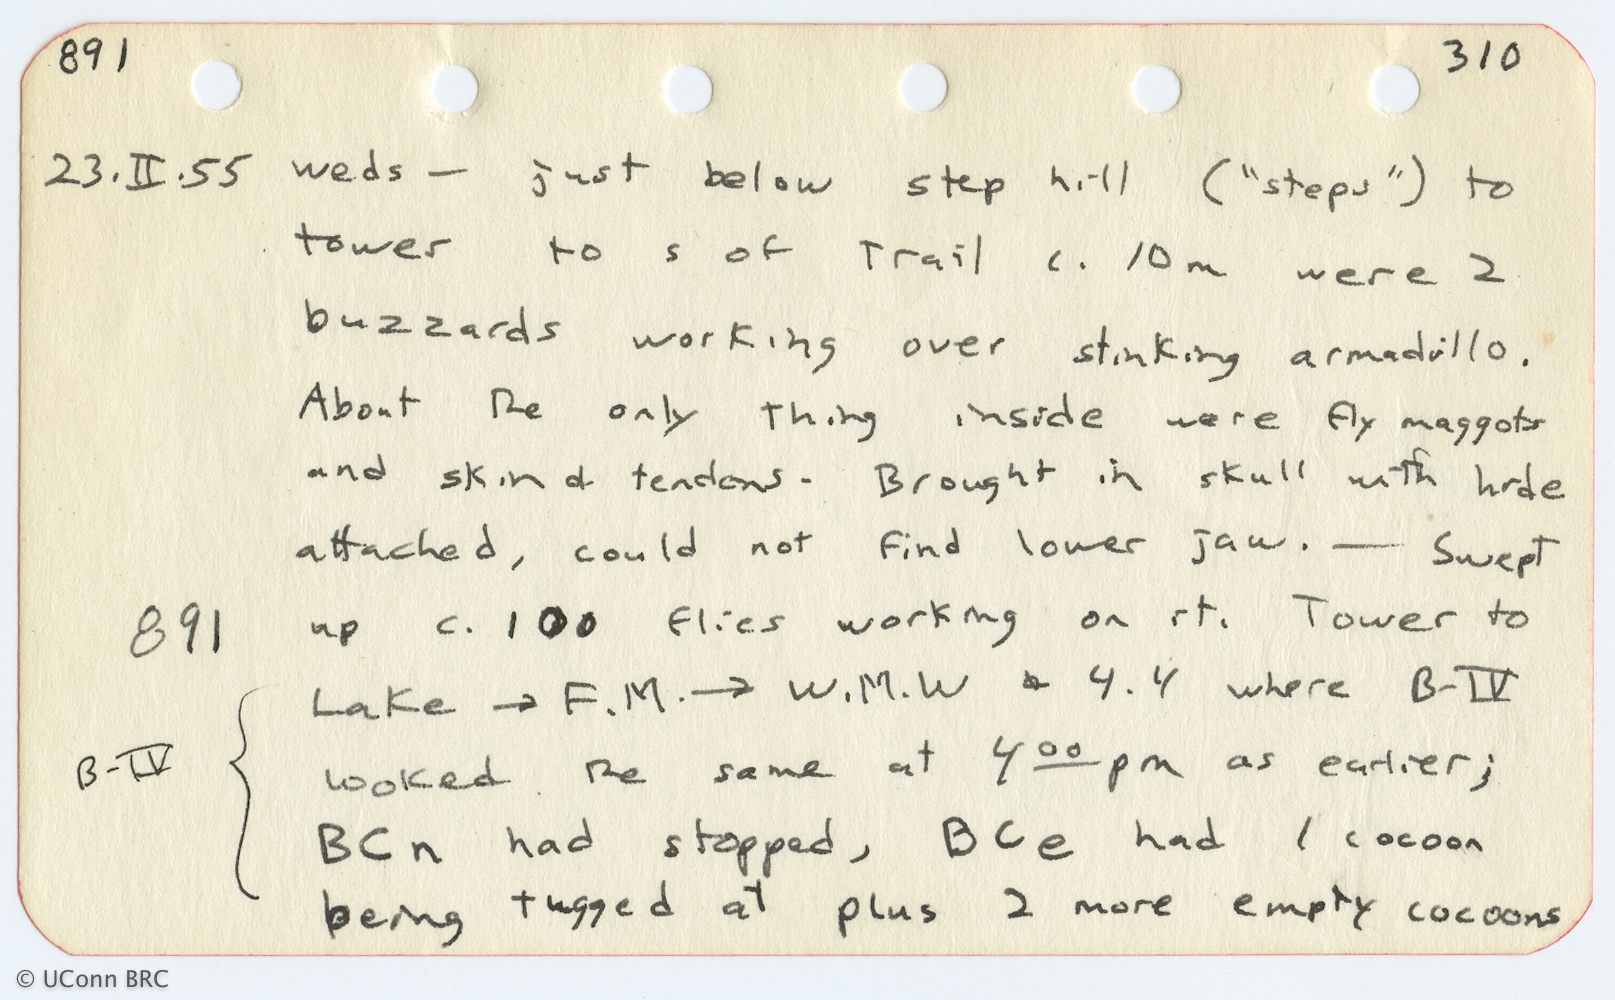 891 310
23.II.55 weds — just below step hill ("steps") to
tower to s of Trail c. 10m were 2
buzzards working over stinking armadillo.
About the only thing inside were fly maggots
and skin & tendons. Brought in skull with hide
attached, could not find lower jaw. — Swept
891 up c. 100 flies working on it. Tower to
Lake → F.M. → W.M.W & 4.4 where B-IV
B-IV looked the same at 4 00 pm as earlier;
BCn had stopped, BCe had 1 cocoon
being tugged at plus 2 more empty cocoons
© UConn BRC